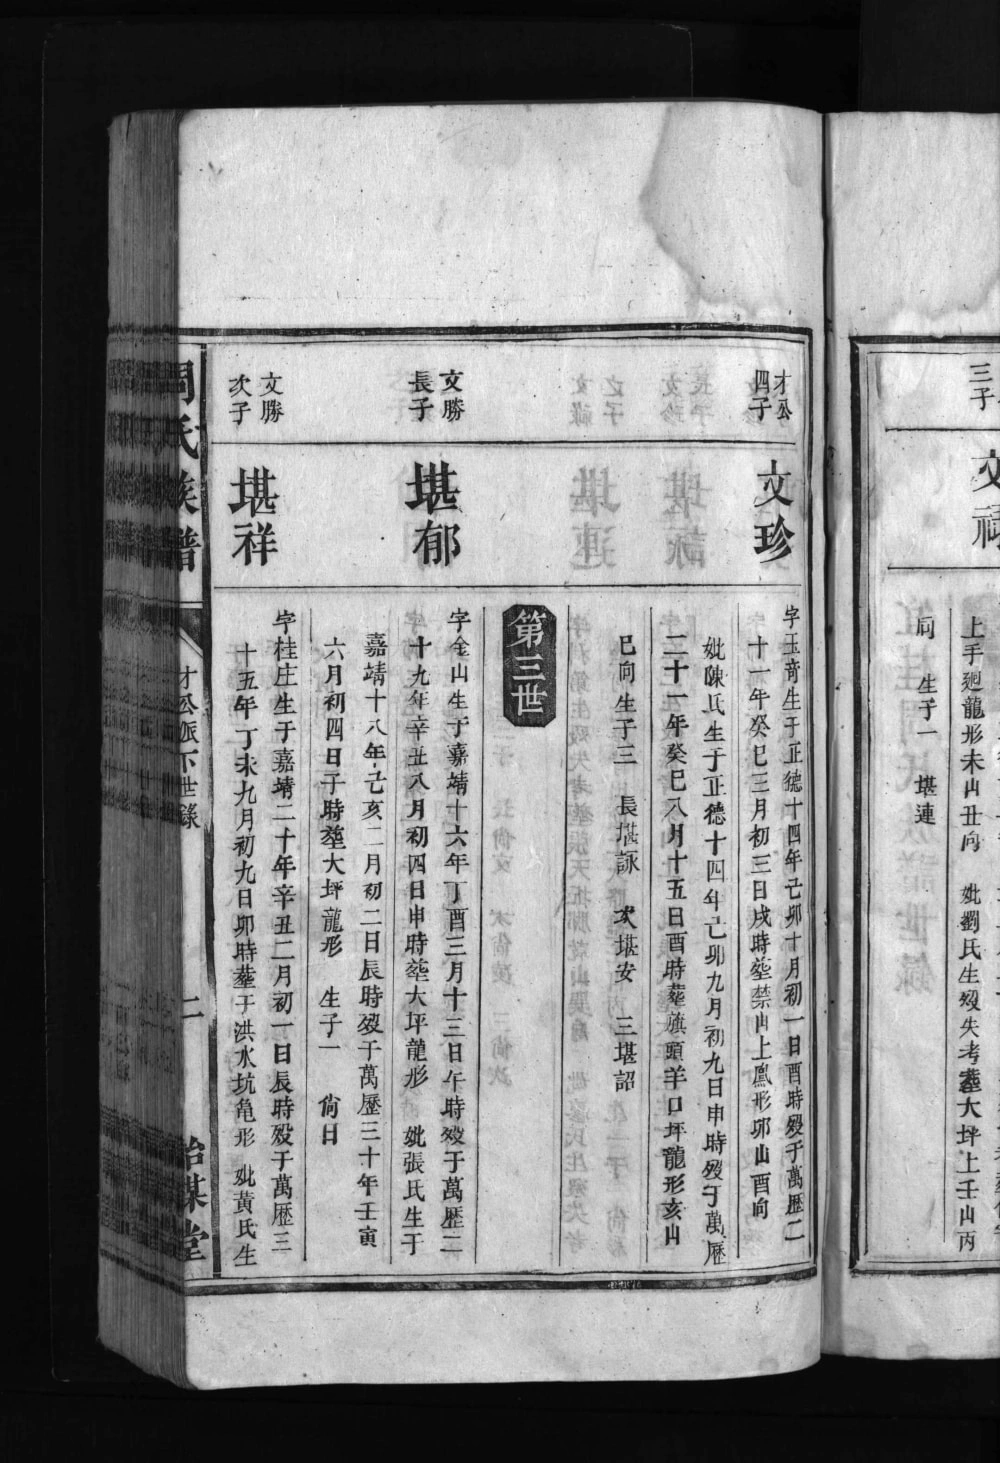 三子
文祿
上手廻龍形未山丑向 妣劉氏生歿失考塟大坪上壬山丙
向 生子一 堪連
才公
四子
文珍
字玉奇生于正德十四年己卯十月初一日酉時歿于萬歷二
十一年癸巳三月初三日戌時塟禁山上鳳形卯山酉向
妣陳氏生于正德十四年己卯九月初九日申時歿于萬歷
二十一年癸巳八月十五日酉時塟旗頭羊口坪龍形亥山
巳向生子三 長堪詠 次堪安 三堪詔
第三世
文勝
長子
堪郁
字金山生于嘉靖十六年丁酉三月十三日午時歿于萬歷二
十九年辛丑八月初四日申時塟大坪龍形 妣張氏生于
嘉靖十八年己亥二月初二日辰時歿于萬歷三十年壬寅
六月初四日子時塟大坪龍形 生子一 尙日
文勝
次子
堪祥
字桂庄生于嘉靖二十年辛丑二月初一日辰時歿于萬歷三
十五年丁未九月初九日卯時塟于洪水坑龟形 妣黃氏生
周氏族譜 才公派下世錄 二 貽謀堂